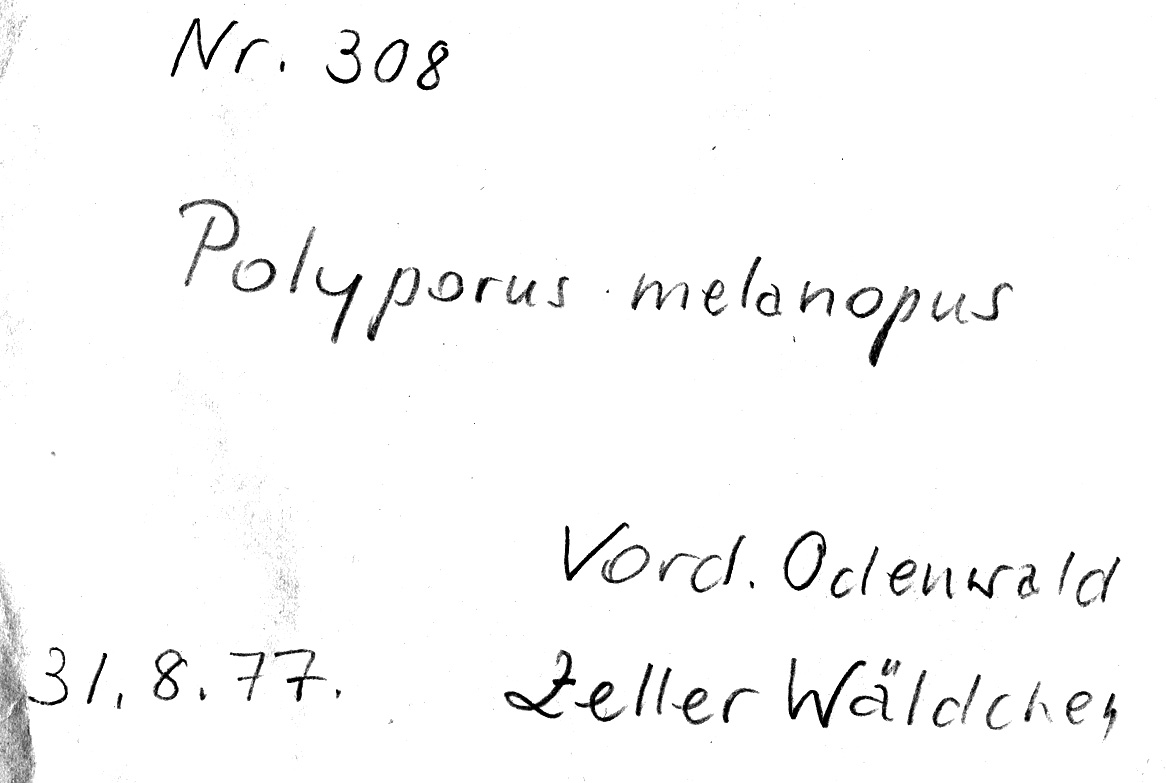 Nr. 308
Polyporus melanopus
Vord. Odenwald
31.8.77. Zeller Wäldchen